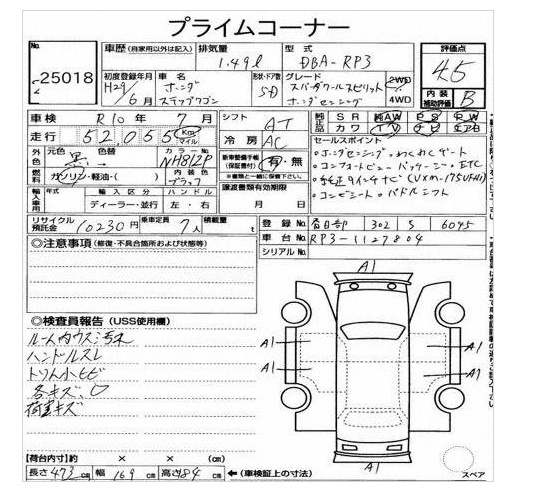 プライムコーナー
No. 25018
車歴 (自家用以外は記入) 排気量 1.49ℓ 型式 DBA-RP3 評価点 4.5
初度登録年月 H29/6月 車名 ホンダ ステップワゴン 形状・ドア数 5D グレード スパーダクールスピリット ホンダセンシング 2WD 4WD 内装 補助評価 B
車検 R10年 7月 シフト AT 純正品 SR AW PS PW
走行 52,055 Km マイル 冷房 AC カワ TV ナビ エアB
外色 元色 黒 色替 カラーNo. NH812P 新車整備手帳 (保証書付) 有・無
セールスポイント
○ホンダセンシング ○わくわくゲート
燃料 ガソリン・軽油・( ) 内装色 ブラック (書類と一緒に保管して下さい。)
○純正9インチナビ(VXM-175VFNi)
○コンビシート ○パドルシフト
輸入車用 年式 輸入区分 ハンドル 譲渡書類有効期限
ディーラー・並行 左・右 月 日
リサイクル預託金 10230円 乗車定員 7人 積載量 t 登録No. 春日部 302 S 6045
◎注意事項 (修復・不具合箇所および状態等) 車台No. RP3-1127804
シリアルNo.
A1
◎検査員報告 (USS使用欄)
ルーム内ウス汚れ
ハンドルスレ
A1 A1
A1 A1
各キズ、凹
荷室キズ
A1
【荷台内寸】 × × (cm)
長さ 473cm 幅 169cm 高さ 184cm ←(車検証上の寸法) スペア